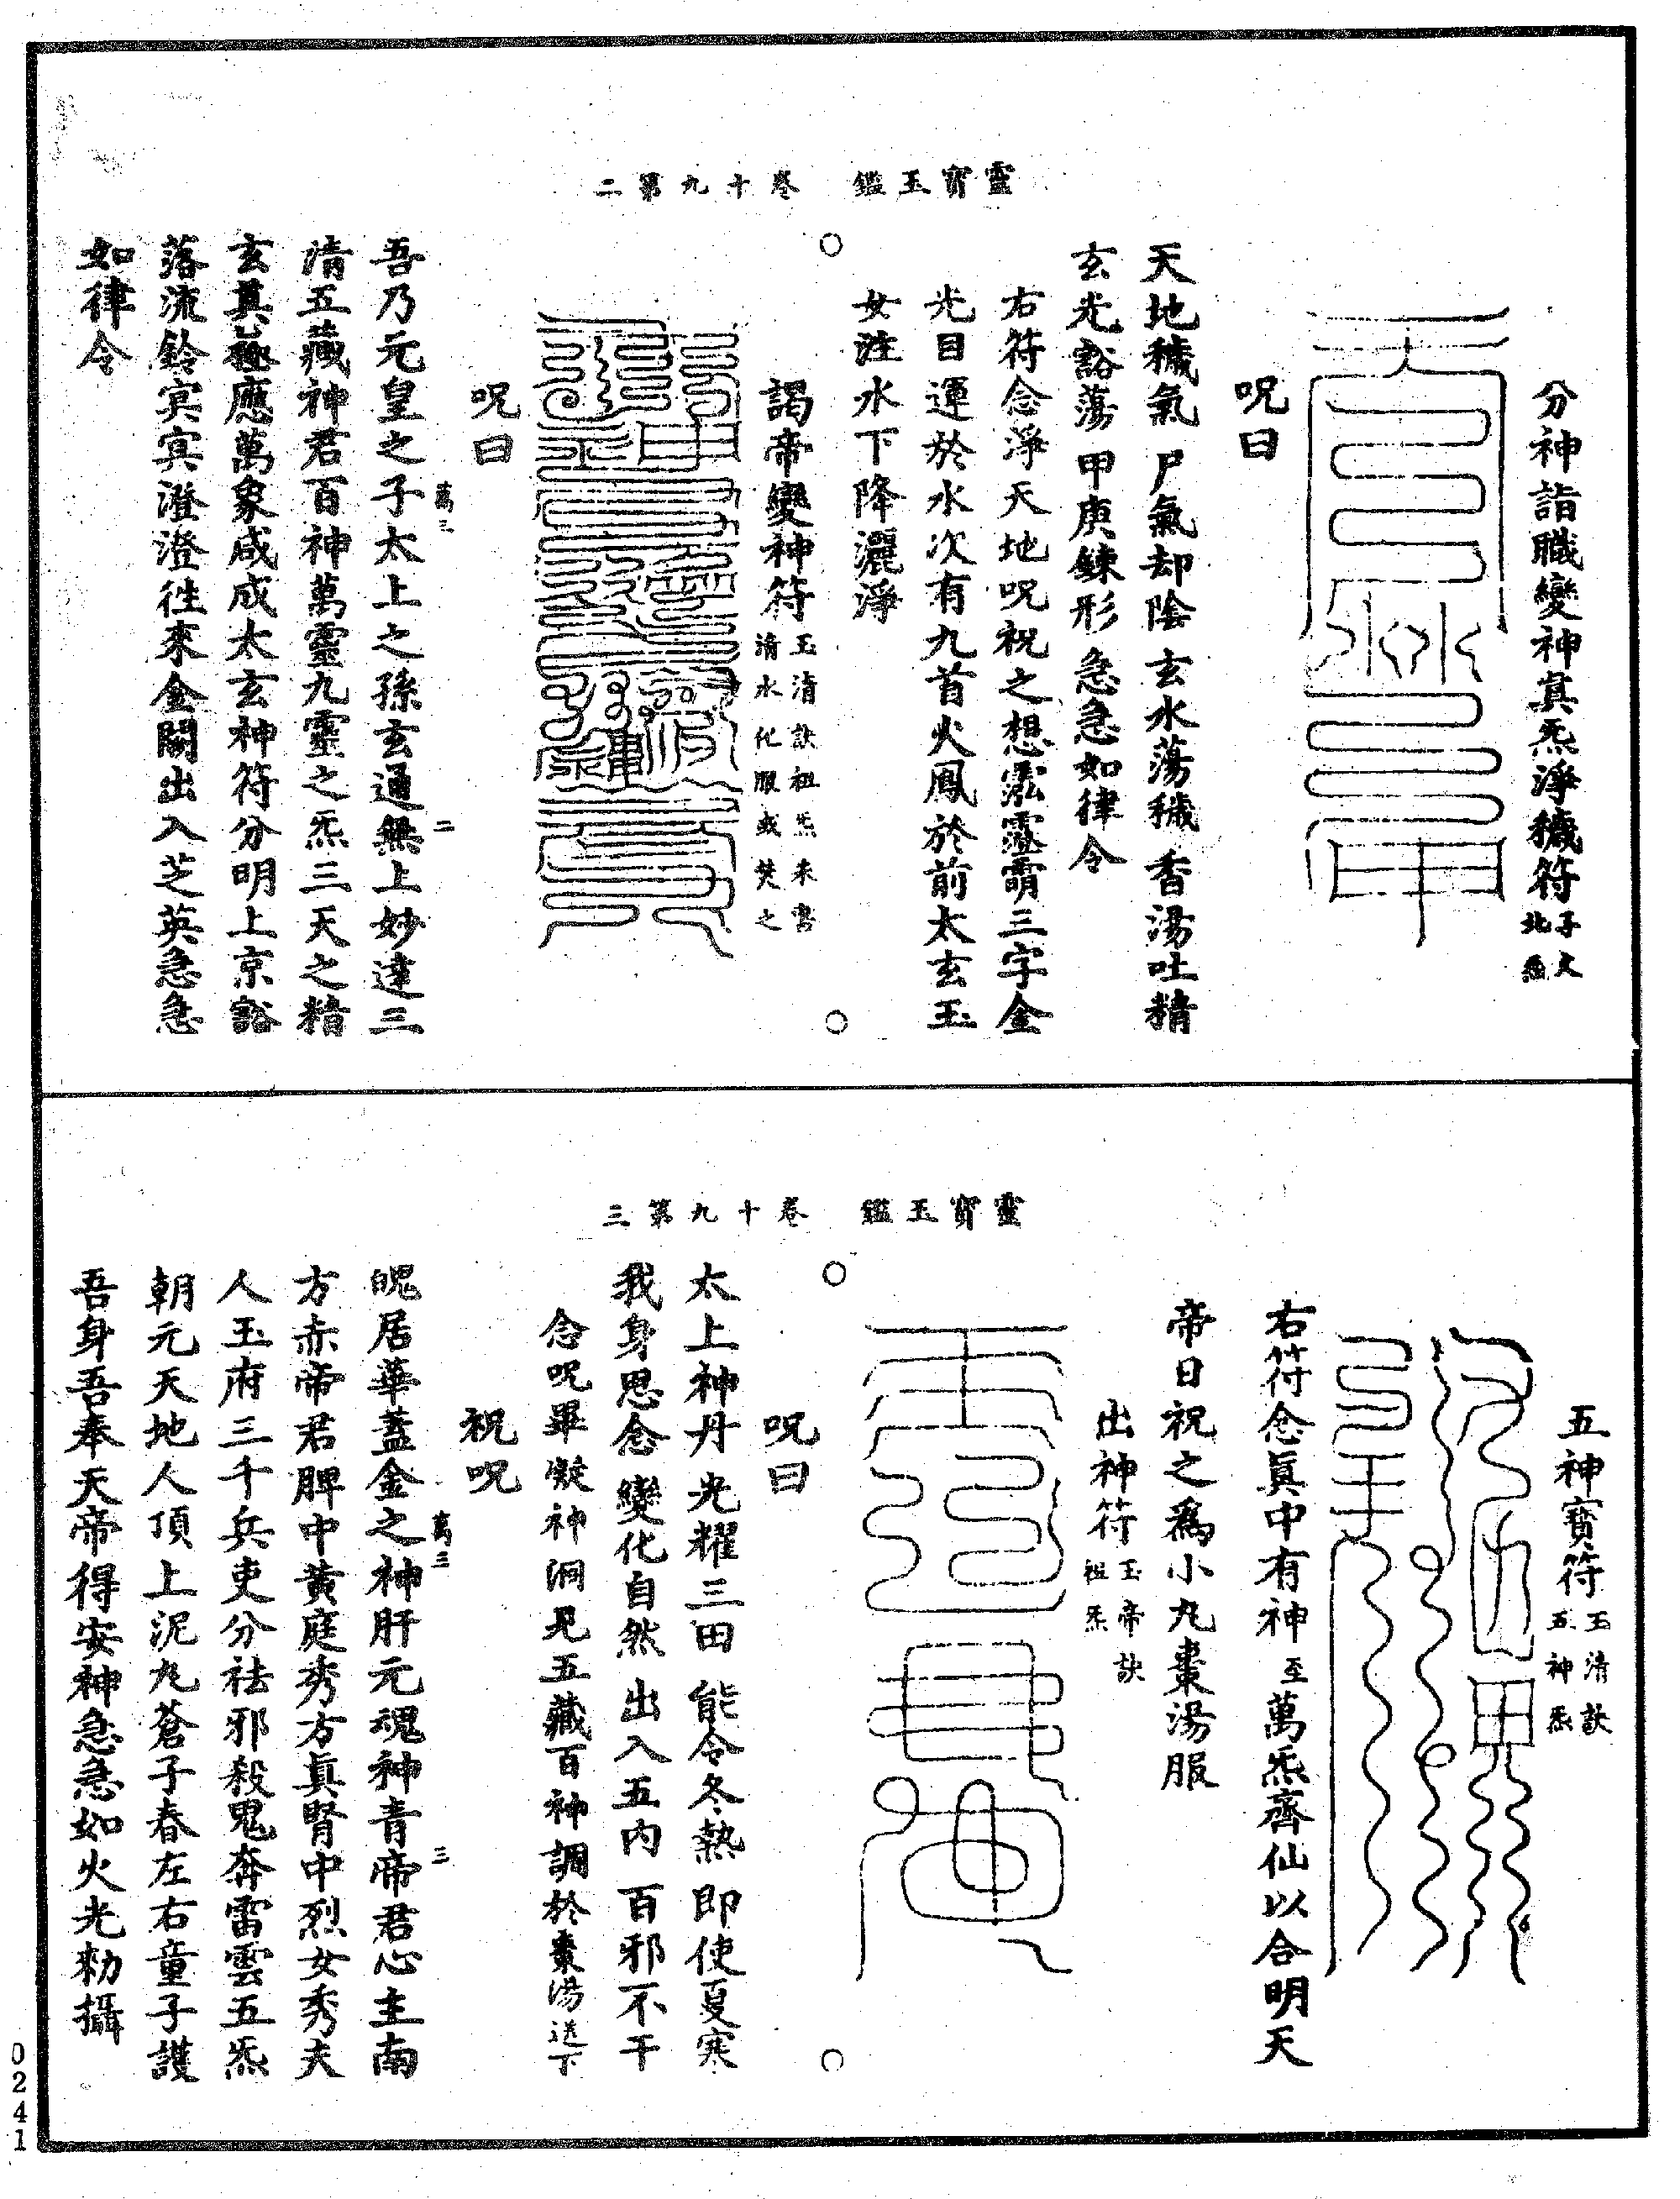 靈寶玉鑑 卷十九第二
分神詣職變神眞炁淨穢符子文北𢙣
呪曰
天地穢氣 尸氣却陰 玄水蕩穢 香湯吐精
玄光豁蕩 甲庚鍊形 急急如律令
右符念淨天地呪祝之想泓澄霛三字金
光目運於水水次有九首火鳳於前太玄玉
女注水下降灑淨
謁帝變神符玉清訣祖炁朱書清水化服或焚之
呪曰
萬三 二
吾乃元皇之子太上之孫玄通無上妙達三
清五藏神君百神萬靈九靈之炁三天之精
玄眞極應萬象咸成太玄神符分明上京豁
落流鈴㝠㝠澄澄徃來金闕出入芝英急急
如律令
靈寶玉鑑 卷十九第三
五神寶符玉清訣五神炁
右符念眞中有神至萬炁齊仙以合明天
帝日祝之爲小丸棗湯服
出神符玉帝訣祖炁
呪曰
太上神丹 光耀三田 能令冬熱 即使夏寒
我身思念 變化自然 出入五內 百邪不干
念呪畢凝神洞見五藏百神調於棗湯送下
祝呪
萬三 三
魄居華蓋金之神肝元魂神青帝君心主南
方赤帝君脾中黃庭秀方眞腎中烈女秀夫
人玉府三千兵吏分祛邪殺鬼奔雷雲五炁
朝元天地人頂上泥丸蒼子春左右童子護
吾身吾奉天帝得安神急急如火光勑攝
0241